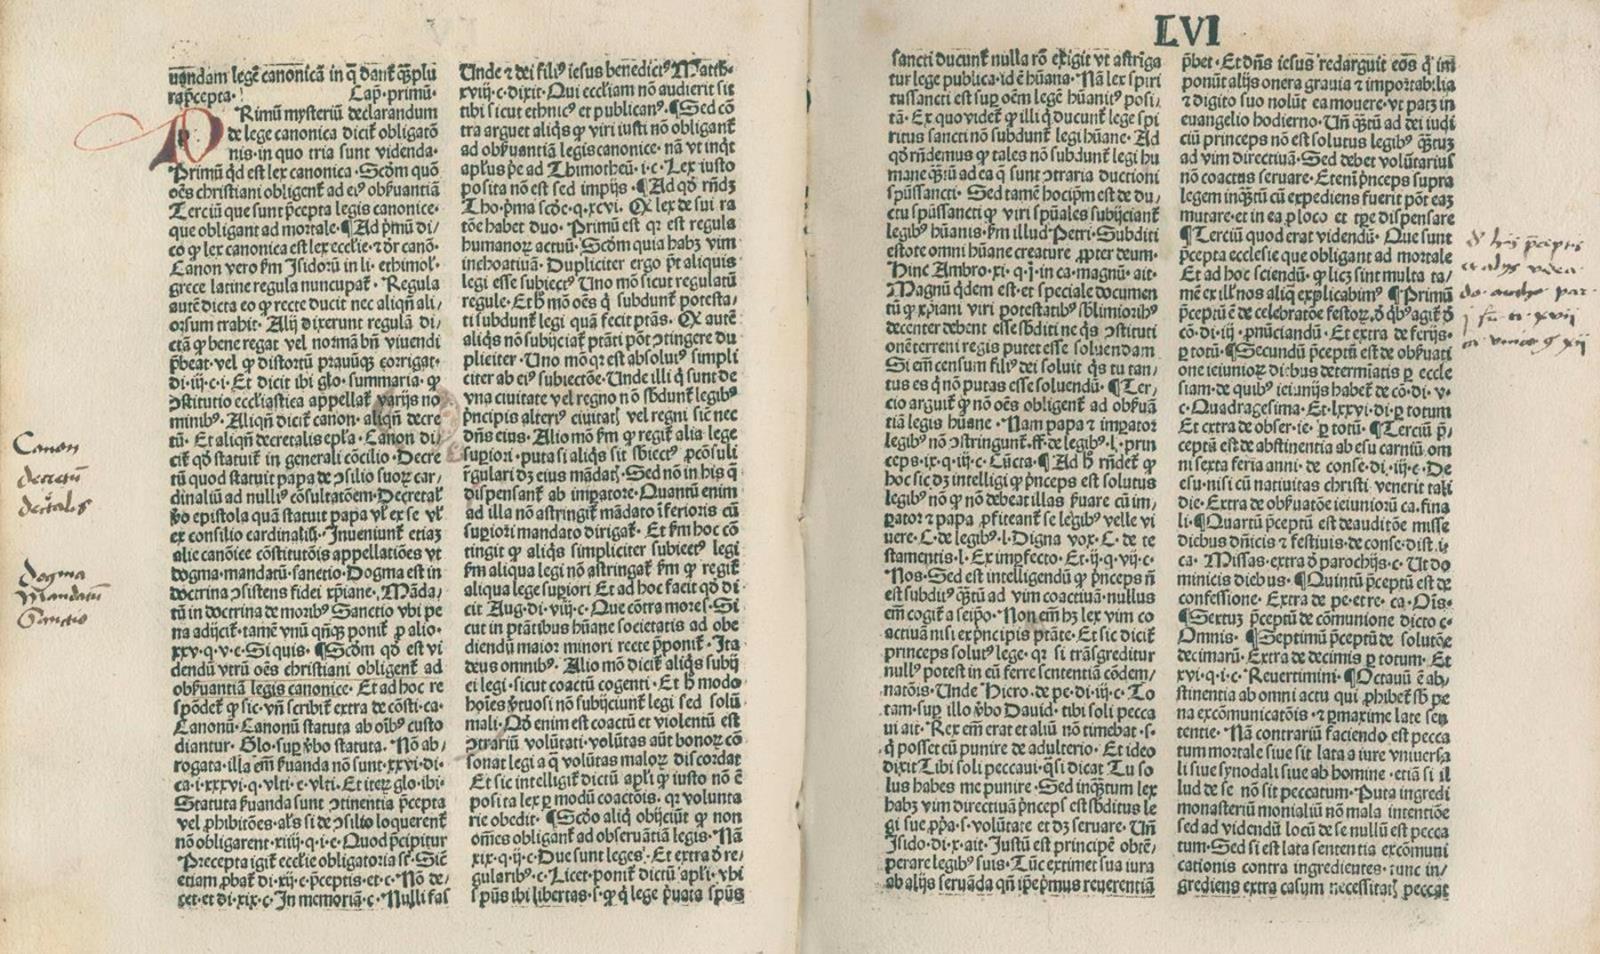 uandam legē canonicā in q̄ dant᷑ q̄ȝplu
ra p̄cepta· Cap̄·primū·
PRimū mysteriū declarandum
de lege canonica dicit᷑ obligatō
nis·in quo tria sunt videnda·
Primū q̄d est lex canonica·Scd̄m quō
oēs christiani obligent᷑ ad eiꝰ obẜuantiā
Terciū que sunt p̄cepta legis canonice·
que obligant ad mortale·¶Ad p̄mū di/
co ꝙ lex canonica est lex ecclīe·⁊ dr̄ canō·
Canon vero ẜm Isidorū in li·ethimol·
grece latine regula nuncupat᷑·Regula
autē dicta eo ꝙ recte ducit nec aliqn̄ ali/
orsum trahit·Alij dixerunt regulā di/
ctā ꝙ bene regat vel normā bn̄ viuendi
p̄beat·vel ꝙ distortū prauūqꝫ corrigat·
di·iij·c·i·Et dicit ibi glo·summaria·ꝙ
ꝯstitutio eccl̄iastica appellat᷑ varijs no
minibꝰ·Aliqn̄ dicit᷑ canon·aliqn̄ decre
tū·Et aliqn̄ decretalis ep̄la·Canon di/
cit᷑ qd̄ statuit᷑ in generali cōcilio·Decre
tū quod statuit papa de ꝯsilio suoꝝ car/
dinaliū ad nulliꝰ cōsultatōem·Decretal᷑
v̄o epistola quā statuit papa vl̓ ex se vl̓
ex consilio cardinaliū·Inueniunt᷑ etiaȝ
alie canōice cōstitutōis appellatiōes vt
dogma·mandatū·sanctio·Dogma est in
doctrina ꝯsistens fidei xp̄iane·Māda/
tū in doctrina de moribꝰ Sanctio vbi pe
na adijcit᷑·tamē vnū qn̄qꝫ ponit᷑ ꝓ alio·
xxv·q·v·c·Si quis·¶Scd̄m qd̄ est vi
dendū vtrū oēs christiani obligent᷑ ad
obẜuantiā legis canonice·Et ad hoc re
spōdet᷑ ꝙ sic·vn̄ scribit᷑ extra de cōsti·ca·
Canonū·Canonū statuta ab oībꝰ custo
diantur·Glo·suꝑ ꝟbo statuta·Nō ab/
rogata·illa em̄ ẜuanda nō sunt·xxvi·di·
ca·i·xxxvi·q·vlti·c·vlti·Et iteꝝ glo·ibi·
Statuta ẜuanda sunt ꝯtinentia p̄cepta
vel ꝓhibitōes·al̓s si de ꝯsilio loquerent᷑
nō obligarent·xiiij·q·i·c·Quod p̄cipitur
Precepta igit᷑ ecclīe obligatoria st̄·Sic̄
etiam ꝓbat᷑ di·xij·c·p̄ceptis·et·c·Nō de/
cet·et di·xix·c·In memoriā·c·Nulli fas
Unde ⁊ dei filiꝰ iesus benedictꝰ Matth·
xviij·c·dixit·Qui eccl̄iam nō audierit sit
tibi sicut ethnicꝰ et publicanꝰ·¶Sed cō
tra arguet aliq̄s ꝙ viri iusti nō obligant᷑
ad obẜuantiā legis canonice·nā vt inqt
apl̄us p̄e ad Thimotheū·i·c·Lex iusto
posita nō est sed impijs·¶Ad qd̄ rn̄dȝ
Tho·p̄ma scd̄e·q·xcvi·Qꝫ lex de sui ra
tōe habet duo·Primū est qꝛ est regula
humanoꝝ actuū·Scd̄m quia habȝ vim
inchoatiuā·Dupliciter ergo p̄t aliquis
legi esse subiectꝰ Uno mō sicut regulatū
regule·Et h̄ mō oēs q̄ subdunt᷑ potesta/
ti subdunt᷑ legi quā fecit ptās·Qꝫ autē
aliq̄s nō subijciat᷑ ptāti pōt ꝯtingere du
pliciter·Uno mō qꝛ est absolutꝰ simpli
citer ab eiꝰ subiectōe·Unde illi q̄ sunt de
vna ciuitate vel regno nō sbdunt᷑ legibꝰ
p̄ncipis alteriꝰ ciuitatȷ vel regni sic̄ nec
dn̄s eius·Alio mō ẜm ꝙ regit᷑ alia lege
suꝑiori·puta si aliq̄s sit sbiectꝰ ꝓcōsuli
r̄gulari dȝ eius mādatȷ·Sed nō in his q̄
dispensant᷑ ab imꝑatore·Quantū enim
ad illa nō astringit᷑ mādato īferioris cū
suꝑiori mandato dirigat᷑·Et ẜm hoc cō
tingit ꝙ aliq̄s simpliciter subiectꝰ legi
ẜm aliqua legi nō astringat᷑ ẜm ꝙ regit᷑
aliqua lege suꝑiori Et ad hoc facit qd̄ di
cit Aug·di·viij·c·Que cōtra mores·Si
cut in ptātibus hūane societatis ad obe
diendū maior minori recte p̄ponit᷑·Ita
deus omnibꝰ·Alio mō dicit᷑ aliq̄s subij
ci legi·sicut coactū cogenti·Et h̄ modo
hoīes ꝟtuosi nō subijciunt᷑ legi sed solū
mali·Qd̄ enim est coactū et violentū est
ꝯtrariū volūtati·volūtas aūt bonoꝝ cō
sonat legi a q̄ volūtas maloꝝ discordat
Et sic intelligit᷑ dictū apl̓i ꝙ iusto nō ē
posita lex ꝑ modū coactōis·qꝛ volunta
rie obedit·¶Scd̄o aliq̄ obijciūt ꝙ non
om̄es obligant᷑ ad obseruātiā legis·Nā
xix·q·ij·c·Due sunt leges·Et extra d̄ re/
gularibꝰ·c·Licet·ponit᷑ dictū apl̓i·vbi
spūs ibi libertas·s·ꝙ q̄ lege p̄uata spūs
Canon
decretū
decretales
dogma
Mandatū
Sanctio
LVI
sancti ducunt᷑ nulla rō exigit vt astriga
tur lege publica·id ē hūana·Nā lex spiri
tussancti est suꝑ oēm legē hūanitꝰ posi/
tā·Ex quo videt᷑ ꝙ illi q̄ ducunt᷑ lege spi
ritus sancti nō subdunt᷑ legi hūane·Ad
qd̄ rn̄demus ꝙ tales nō subdunt᷑ legi hu
mane q̄ȝtū ad ea q̄ sunt ꝯtraria ductioni
spūssancti·Sed tamē hocip̄m est de du/
ctu spūssancti ꝙ viri spūales subijciant᷑
legibꝰ hūanis·ẜm illud Petri·Subditi
estote omni hūane creature ꝓpter deum·
Hinc Ambro·xi·q·i·in ca·magnū·ait·
Magnū q̄dem est·et speciale documen
tū ꝙ xp̄iani viri potestatibꝰ sblimioribꝰ
decenter debent esse sbditi ne q̄s ꝯstituti
onē terreni regis putet esse soluendam
Si em̄ censum filiꝰ dei soluit q̄s tu tan/
tus es q̄ nō putas esse soluendū·¶Ter/
cio arguit᷑ ꝙ nō oēs obligent᷑ ad obẜuā
tiā legis hūane·Nam papa ⁊ imꝑator
legibꝰ nō ꝯstringunt᷑·ff·de legibꝰ·l·prin
ceps·ix·q·iij·c·Cūcta·¶Ad h̄ rn̄det᷑ ꝙ
hoc sic dȝ intelligi ꝙ p̄nceps est solutus
legibꝰ nō ꝙ nō debeat illas ẜuare cū im/
ꝑator ⁊ papa ꝓfiteant᷑ se legibꝰ velle vi
uere·C·de legibꝰ·l·Digna vox·C·de te
stamentis·l·Ex imꝑfecto·Et·ij·q·vij·c·
Nos·Sed est intelligendū ꝙ p̄nceps nō
est subditꝰ q̄ȝtū ad vim coactiuā·nullus
em̄ cogit᷑ a seip̄o·Non em̄ hȝ lex vim co
actiuā nisi ex p̄ncipis ptāte·Et sic dicit᷑
princeps solutꝰ lege·qꝛ si trāsgreditur
nullꝰ potest in eū ferre sententiā cōdem/
natōis·Unde Hiero·de pe·di·iij·c·To
tam·suꝑ illo ꝟbo Dauid·tibi soli pecca
ui ait·Rex em̄ erat et aliū nō timebat·s·
q̄ posset eū punire de adulterio·Et ideo
dixit Tibi soli peccaui·q̄si dicat Tu so
lus habes me punire·Sed inq̄ȝtum lex
habȝ vim directiuā p̄nceps est sbditus le
gi sue ꝓp̄a·s·volūtate et dȝ seruare·Un̄
Isido·di·x·ait·Justū est principē obtē/
perare legibꝰ suis·Tūc extimet sua iura
ab alijs seruāda qn̄ ip̄e p̄mus reuerentiā
p̄bet·Et dn̄s iesus redarguit eos q̄ im
ponūt alijs onera grauia ⁊ importabilia
⁊ digito suo nolūt ea mouere·vt patȝ in
euangelio hodierno·Un̄ q̄ȝtū ad dei iudi
ciū princeps nō est solutus legibꝰ q̄ȝtuȝ
ad vim directiuā·Sed debet volūtarius
nō coactus seruare·Etenī p̄nceps supra
legem inq̄ȝtū cū expediens fuerit pōt eaȝ
mutare·et in ea ꝓ loco et tꝑe dispensare
¶Terciū quod erat videndū·Que sunt
p̄cepta ecclesie que obligant ad mortale
Et ad hoc sciendū·ꝙ licȝ sint multa ta/
mē ex ill̓ nos aliq̄ explicabimꝰ ¶Primū
p̄ceptū ē de celebratōe festoꝝ·d̄ qbꝰ agit᷑ d̄
cō·di·iij·pnūciandū·Et extra de ferijs·
ꝑ totū·¶Secundū p̄ceptū est de obẜuati
one ieiunioꝝ diebus determīatis ꝑ eccle
siam·de quibꝰ ieiunijs habet᷑ de cō·di·v·
c·Quadragesima·Et·lxxvi·di·ꝑ totum
Et extra de obser·ie·ꝑ totū·¶Terciū p̄/
ceptū est de abstinentia ab esu carniū om
ni sexta feria anni·de conse·di·iij·c·De
esu·nisi cū natiuitas christi venerit tali
die·Extra de obẜuatōe ieiuniorū ca·fina
li·¶Quartū p̄ceptū est de auditōe misse
diebus dn̄icis ⁊ festiuis·de conse·dist·i·
ca·Missas·extra d̄ parochijs·c·Ut do
minicis diebus·¶Quintū p̄ceptū est de
confessione·Extra de pe·et re·ca·Oīs·
¶Sextuȝ p̄ceptū de cōmunione dicto c·
Omnis·¶Septimū p̄ceptū de solutōe
decimarū·Extra de decimis ꝑ totum·Et
xvi·q·i·c·Reuertimini·¶Octauū ē ab/
stinentia ab omni actu qui ꝓhibet᷑ sb̄ pe
na excōmunicatōis·⁊ ꝑmaxime late sen
tentie·Nā contrariū faciendo est pecca
tum mortale siue sit lata a iure vniuersa
li siue synodali siue ab homine·etiā si il
lud de se nō sit peccatum·Puta ingredi
monasteriū monialiū nō mala intentiōe
sed ad videndū locū de se nullū est pecca
tum·Sed si est lata sententia excōmuni
cationis contra ingredientes·tunc in/
grediens extra casum necessitatȷ peccat